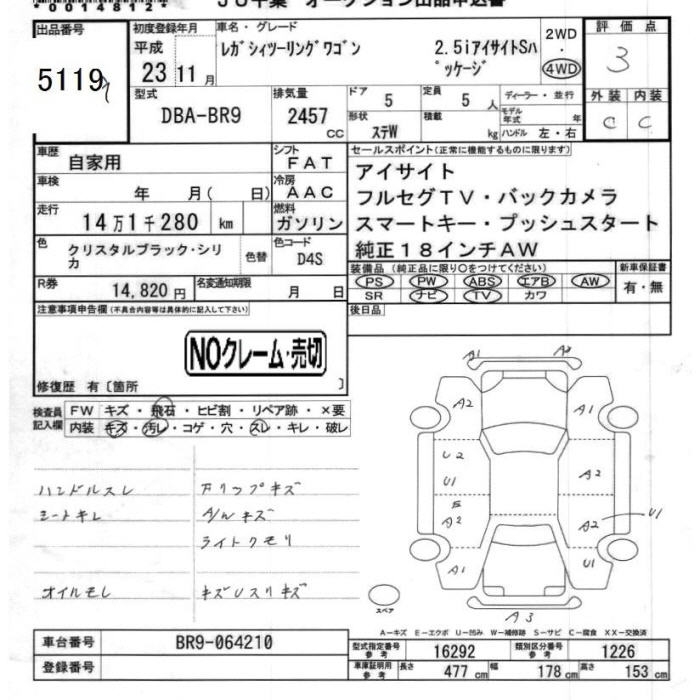 *00148120*
JU千葉 オークション出品申込書
出品番号
5119
初度登録年月
平成
23年11月
車名・グレード
レガシィツーリングワゴン 2.5iアイサイトSパッケージ
2WD
・
4WD
評価点
3
外装 内装
C C
型式
DBA-BR9
排気量
2457
CC
ドア
5
定員
5人
ディーラー・並行
モデル年式 年
形状
ステW
積載
kg
ハンドル 左・右
車歴
自家用
シフト
FAT
車検
年 月( 日)
冷房
AAC
走行
14万1千280 km
燃料
ガソリン
色
クリスタルブラック・シリカ
色替
色コード
D4S
R券
14,820円
名変通知期限
月 日
セールスポイント(正常に機能するものに限ります)
アイサイト
フルセグTV・バックカメラ
スマートキー・プッシュスタート
純正18インチAW
装備品(純正品に限り○をつけてください)
PS PW ABS エアB AW
SR ナビ TV カワ
新車保証書
有・無
後日品
注意事項申告欄(不具合内容等は具体的に記入して下さい)
NOクレーム・売切
修復歴 有〔箇所 〕
検査員記入欄
FW キズ・飛石・ヒビ割・リペア跡・×要
内装 キズ・汚レ・コゲ・穴・スレ・キレ・破レ
ハンドルスレ
シートキレ
オイルモレ
下リップキズ
A/Wキズ
ライトクモリ
キズUスリキズ
A1
A2
A1
U2
U1
A2
A2
A2
U1
A1
U1
A3
スペア
A−キズ E−エクボ U−凹み W−補修跡 S−サビ C−腐食 XX−交換済
車台番号
BR9-064210
登録番号
型式指定番号 参考
16292
類別区分番号 参考
1226
車庫証明用 参考
長さ 477 cm
幅 178 cm
高さ 153 cm